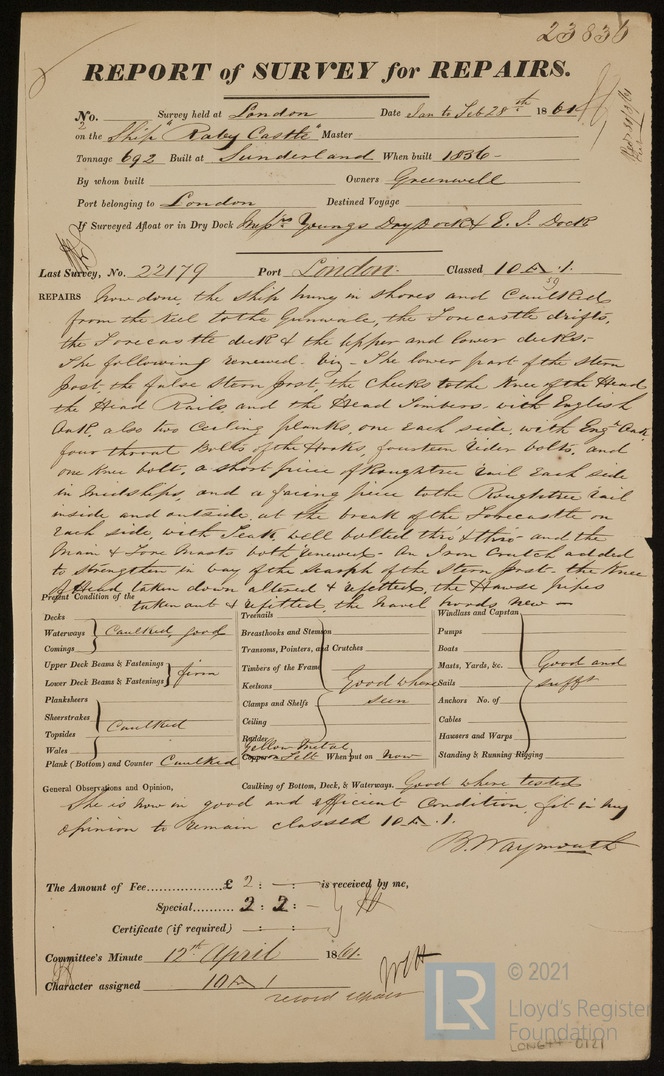 23836
REPORT of SURVEY for REPAIRS.
No. Survey held at London Date Jan to Feb 28th 1861
2
on the Ship "Raby Castle" Master
Tonnage 692 Built at Sunderland When built 1856-
By whom built Owners Greenwell
Port belonging to London Destined Voyage
If Surveyed Afloat or in Dry Dock Messrs Youngs Dry Dock & E. I. Docks
Last Survey, No. 22179 Port London. Classed 10 A. 1.
59
REPAIRS Now done, the ship hung in shores and Caulked
from the Keel to the Gunwale, the Forecastle drifts,
the Forecastle deck & the upper and lower decks,-
The following renewed. Viz- The lower part of the Stern
post, the false Stern post, the Cheeks to the Knee of the Head
the Head Rails and the Head Timbers with English
Oak, also two Ceiling planks, one each side, with Engh Oak,
four throat Bolts of the Hooks, fourteen Rider bolts, and
one Knee bolt, a short piece of Roughtree rail each side
in Midships, and a facing piece to the Roughtree rail
inside and outside at the break of the Forecastle on
each side, with Teak, well bolted thro & thro- and the
Main & Fore Masts both renewed- An Iron Crutch added
to strengthen in way of the scarph of the Stern post- the Knee
of Head taken down altered & refitted, the Hawse pipes
Present Condition of the taken out & refitted, the Navel hoods New -
Decks
Waterways Caulked, good
Comings
Upper Deck Beams & Fastenings
Lower Deck Beams & Fastenings firm
Planksheers
Sheerstrakes
Topsides Caulked
Wales
Plank (Bottom) and Counter Caulked
Treenails
Breasthooks and Stemson
Transoms, Pointers, and Crutches
Timbers of the Frame
Keelsons Good where
Clamps and Shelfs seen
Ceiling
Rudder
Yellow Metal
Copper on Felt When put on Now
Windlass and Capstan
Pumps
Boats
Masts, Yards, &c. Good and
Sails sufft
Anchors No. of
Cables
Hawsers and Warps
Standing & Running Rigging
General Observations and Opinion, Caulking of Bottom, Deck, & Waterways. Good where tested
She is now in good and efficient Condition, fit in my
opinion to remain classed 10 A. 1.
B. Waymouth
The Amount of Fee £ 2 : - : - is received by me,
Special 2 : 2 : -
Certificate (if required)
Committee's Minute 12th April 1861.
Character assigned 10 A 1
record repairs
LR
© 2021
Lloyd's Register
Foundation
LON644 0121